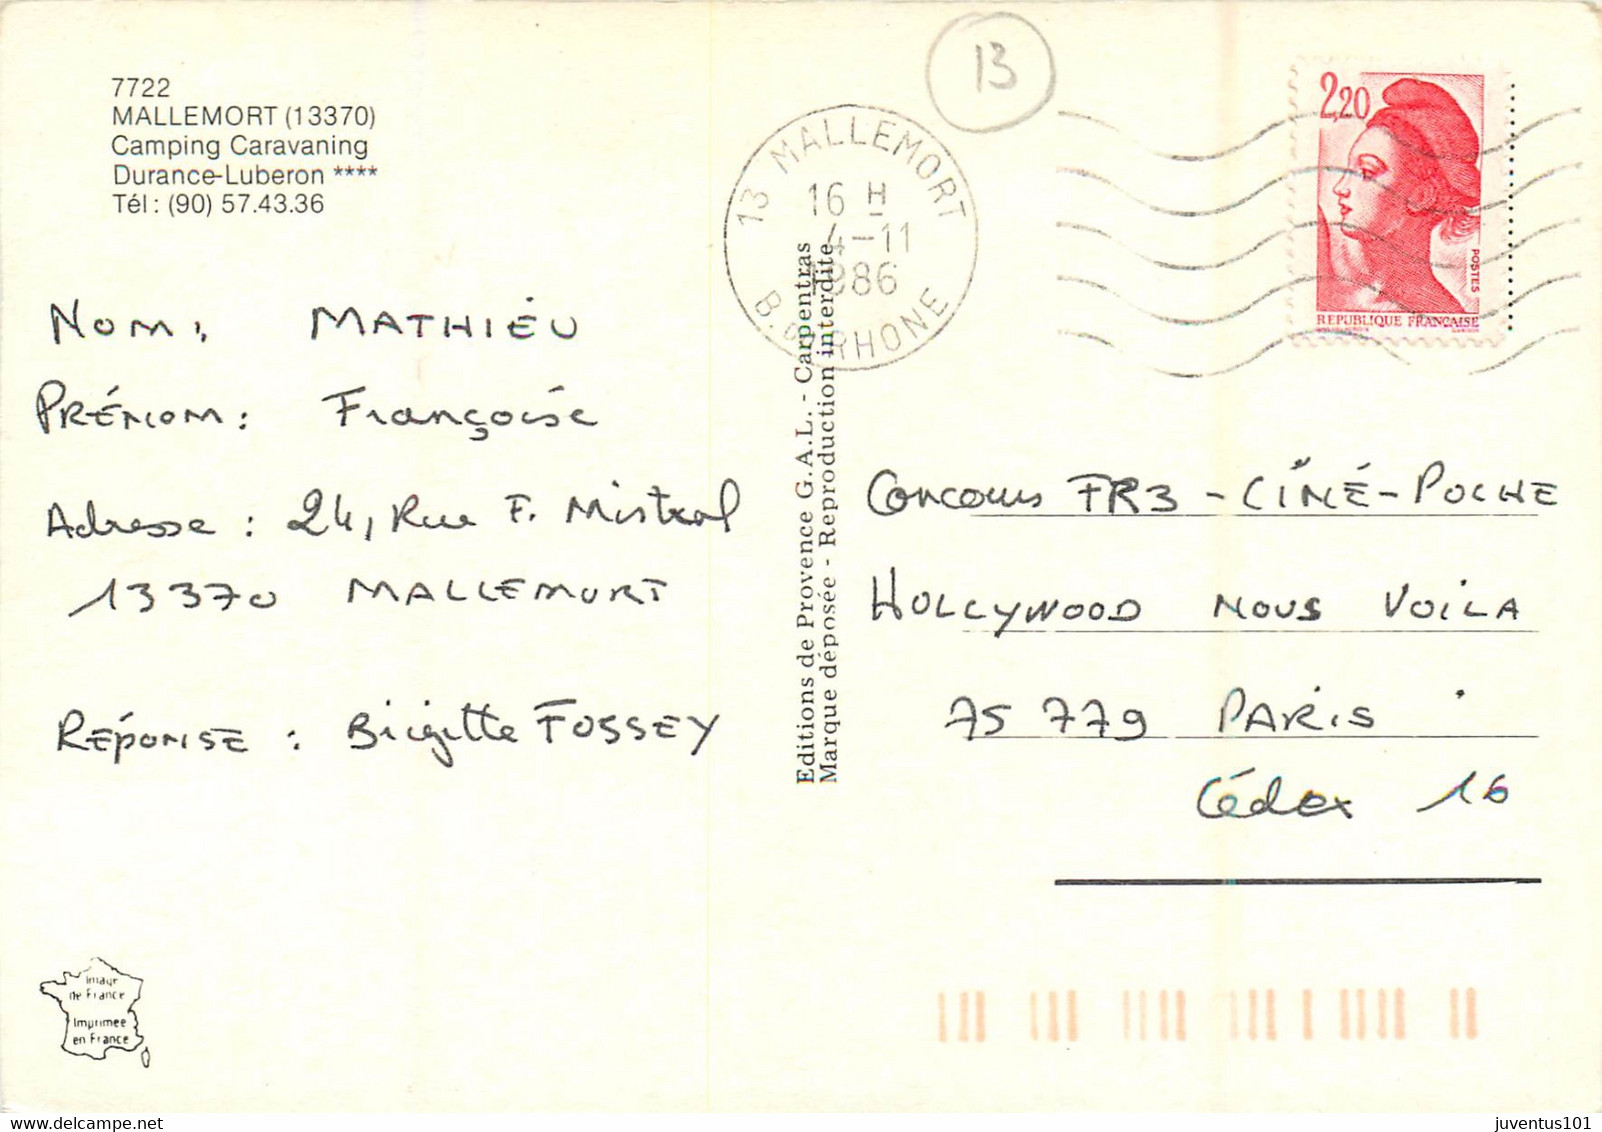 7722
MALLEMORT (13370)
Camping Caravaning
Durance-Luberon ****
Tél : (90) 57.43.36
NOM : MATHIEU
PRÉNOM : Françoise
Adresse : 24, Rue F. Mistral
13370 MALLEMORT
RÉPONSE : Brigitte FOSSEY
Image
de France
Imprimée
en France
Editions de Provence G.A.L. - Carpentras
Marque déposée - Reproduction interdite
13
13 MALLEMORT
16 H
4-11
1986
B. DU RHONE
2,20
POSTES
REPUBLIQUE FRANÇAISE
Concours FR3 - CINÉ - POCHE
HOLLYWOOD NOUS VOILA
75 779 PARIS
Cédex 16
juventus101